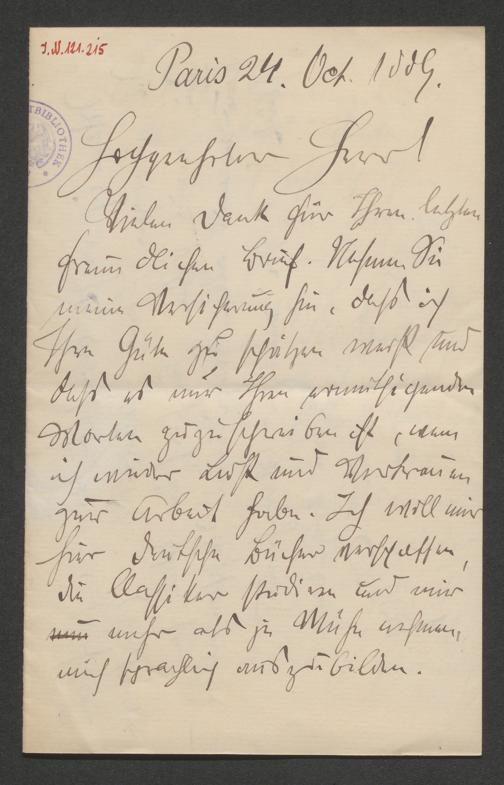 I.N. 121.215
Paris 24. Oct. 1889.
STBIBLIOTHEK
Hochgeehrter Herr!
Vielen Dank für Ihren letzten
freundlichen Brief. Nehmen Sie
meine Versicherung hin, daß ich
Ihre Güte zu schätzen weiß und
daß es nur Ihren ermuthigenden
Worten zuzuschreiben ist, wenn
ich wieder Lust und Vertrauen
zur Arbeit habe. Ich will mir
hier deutsche Bücher verschaffen,
die Classiker studieren und mir
mehr als je Mühe nehmen,
mich sprachlich auszubilden.